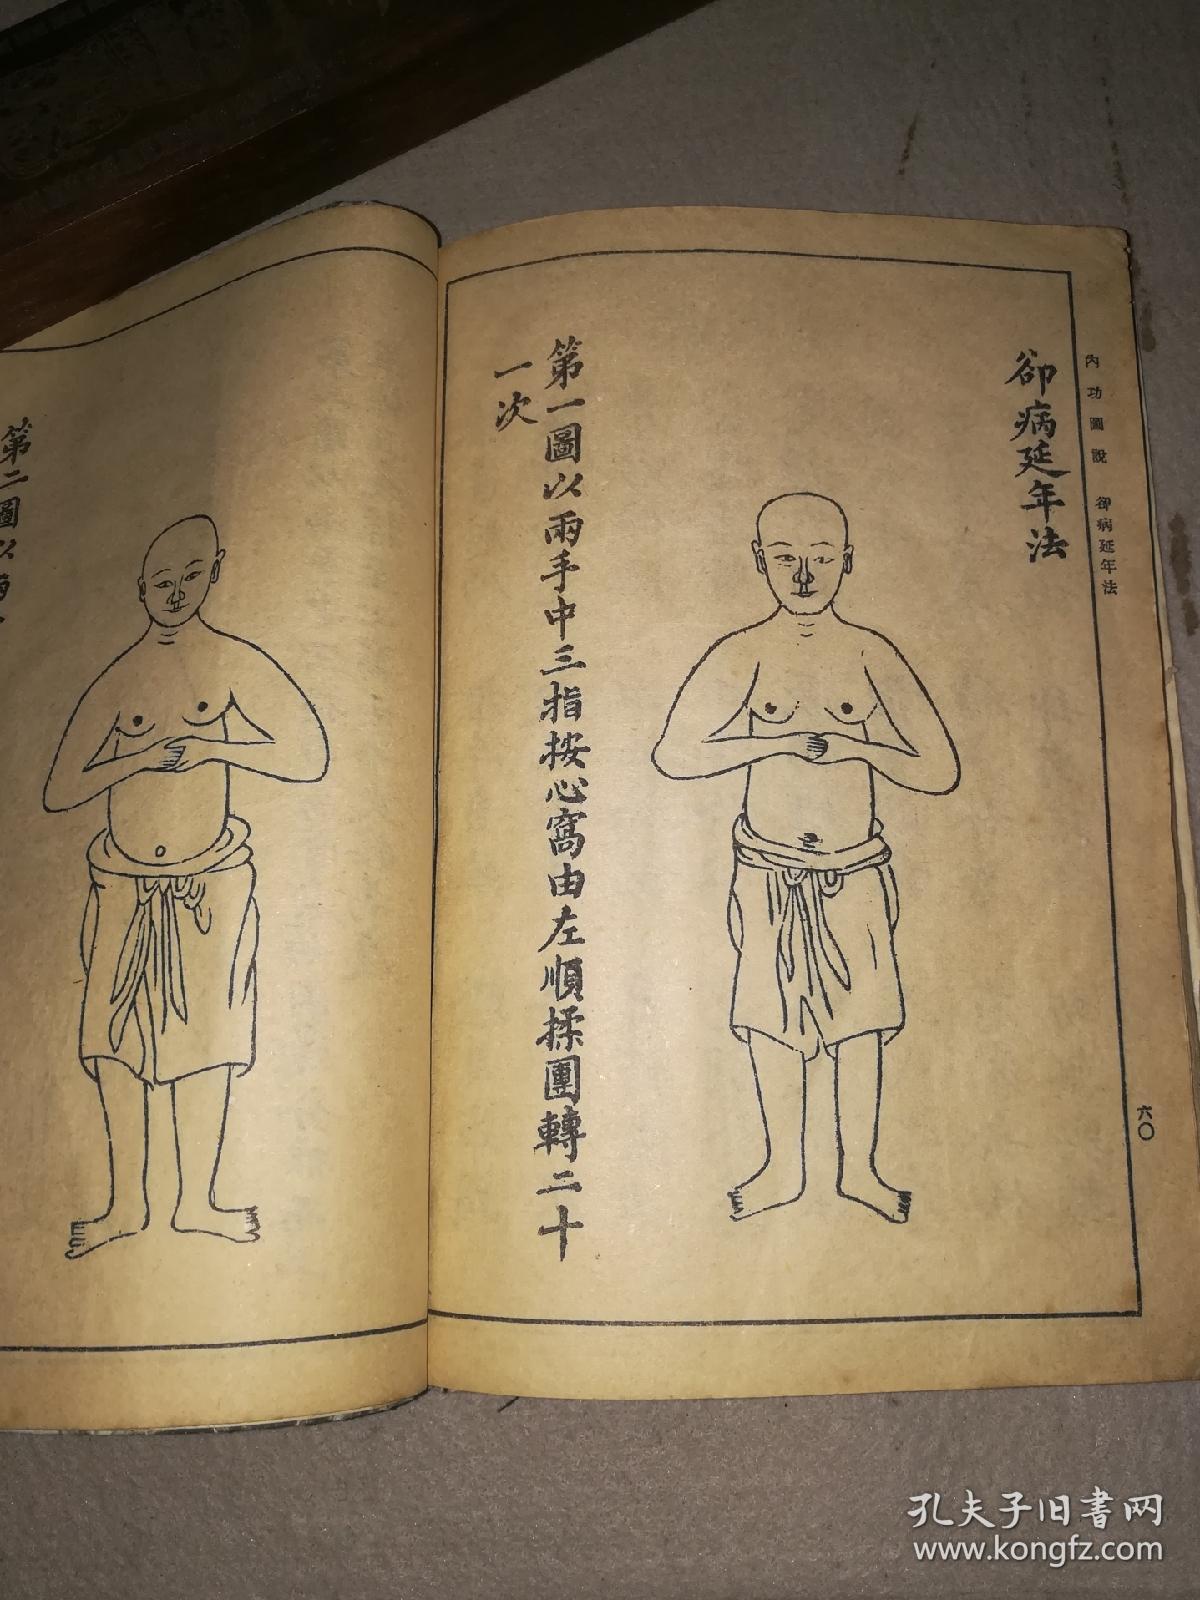 內功圖說 卻病延年法
卻病延年法
第一圖以兩手中三指按心窩由左順揉團轉二十
一次
六〇
第二圖以兩
孔夫子旧书网
www.kongfz.com